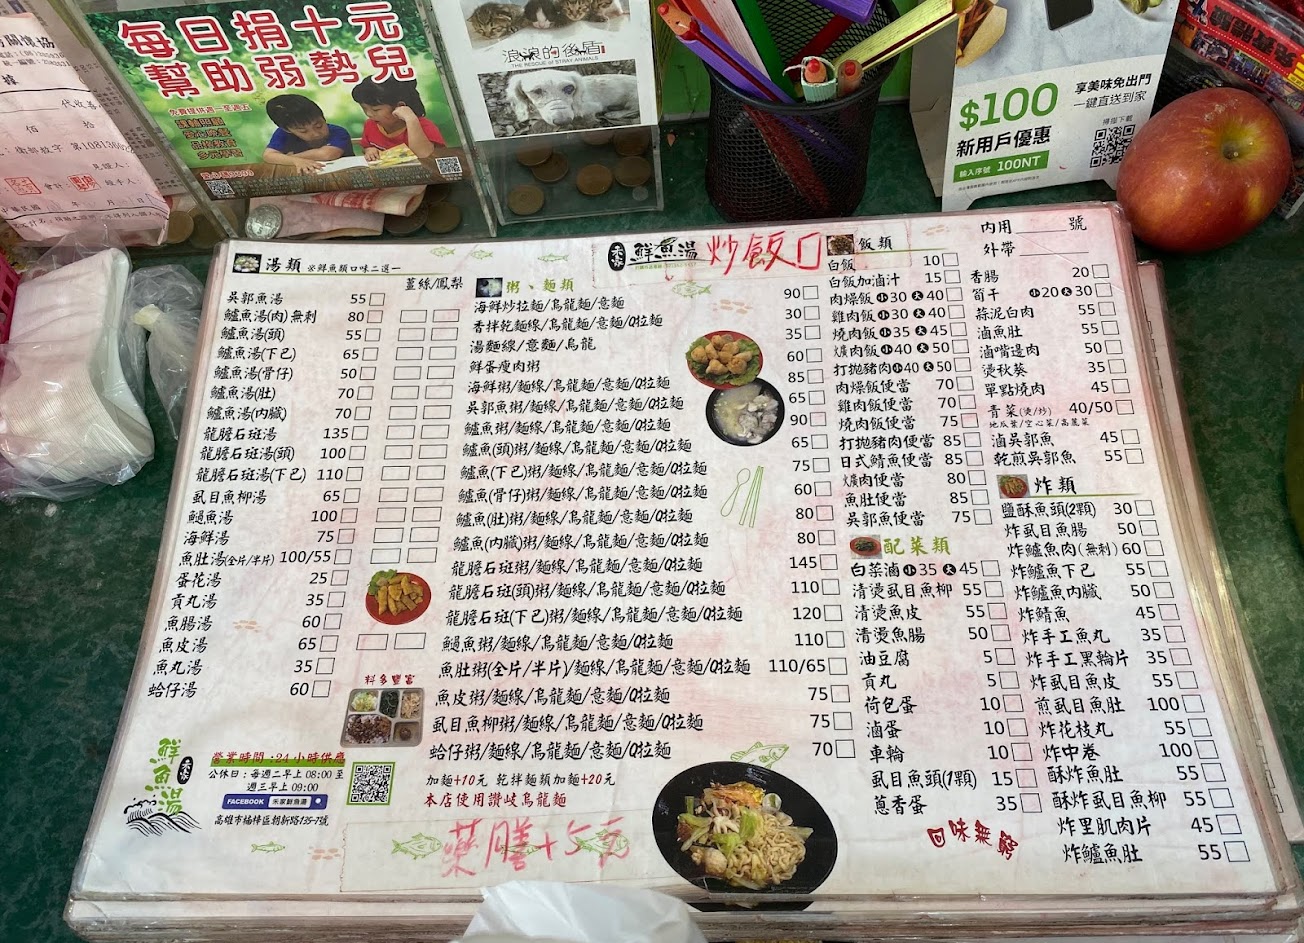 每日捐十元
幫助弱勢兒
免費提供週一至週五
課輔照顧
愛心晚餐
品格教育
多元學習
浪浪的後盾
The RESCUE of STRAY ANIMALS
$100
新用戶優惠
輸入序號 100NT
享美味免出門
一鍵直送到家
掃描下載
代收
佰 拾
見證人
會計
經手人
年 月 日
禾家 鮮魚湯
炒飯口
內用 號
外帶
湯類 ※鮮魚類口味二選一
薑絲/鳳梨
吳郭魚湯 55
鱸魚湯(肉)無刺 80
鱸魚湯(頭) 55
鱸魚湯(下巴) 65
鱸魚湯(骨仔) 50
鱸魚湯(肚) 70
鱸魚湯(內臟) 70
龍膽石斑湯 135
龍膽石斑湯(頭) 100
龍膽石斑湯(下巴) 110
虱目魚柳湯 65
鮸魚湯 100
海鮮湯 75
魚肚湯(全片/半片) 100/55
蛋花湯 25
貢丸湯 35
魚腸湯 60
魚皮湯 65
魚丸湯 35
蛤仔湯 60
料多豐富
粥、麵類
海鮮炒拉麵/烏龍麵/意麵 90
香拌乾麵線/烏龍麵/意麵/Q拉麵 30
湯麵線/意麵/烏龍 35
鮮蛋瘦肉粥 60
海鮮粥/麵線/烏龍麵/意麵/Q拉麵 85
吳郭魚粥/麵線/烏龍麵/意麵/Q拉麵 65
鱸魚粥/麵線/烏龍麵/意麵/Q拉麵 90
鱸魚(頭)粥/麵線/烏龍麵/意麵/Q拉麵 65
鱸魚(下巴)粥/麵線/烏龍麵/意麵/Q拉麵 75
鱸魚(骨仔)粥/麵線/烏龍麵/意麵/Q拉麵 60
鱸魚(肚)粥/麵線/烏龍麵/意麵/Q拉麵 80
鱸魚(內臟)粥/麵線/烏龍麵/意麵/Q拉麵 80
龍膽石斑粥/麵線/烏龍麵/意麵/Q拉麵 145
龍膽石斑(頭)粥/麵線/烏龍麵/意麵/Q拉麵 110
龍膽石斑(下巴)粥/麵線/烏龍麵/意麵/Q拉麵 120
鮸魚粥/麵線/烏龍麵/意麵/Q拉麵 110
魚肚粥(全片/半片)/麵線/烏龍麵/意麵/Q拉麵 110/65
魚皮粥/麵線/烏龍麵/意麵/Q拉麵 75
虱目魚柳粥/麵線/烏龍麵/意麵/Q拉麵 75
蛤仔粥/麵線/烏龍麵/意麵/Q拉麵 70
加麵+10元 乾拌麵類加麵+20元
本店使用讚岐烏龍麵
藥膳+5元
飯類
白飯 10
白飯加滷汁 15
肉燥飯 小30 大40
雞肉飯 小30 大40
燒肉飯 小35 大45
爌肉飯 小40 大50
打拋豬肉 小40 大50
肉燥飯便當 70
雞肉飯便當 70
燒肉飯便當 75
打拋豬肉便當 85
日式鯖魚便當 85
爌肉便當 80
魚肚便當 85
吳郭魚便當 75
配菜類
白菜滷 小35 大45
清燙虱目魚柳 55
清燙魚皮 55
清燙魚腸 50
油豆腐 5
貢丸 5
荷包蛋 10
滷蛋 10
車輪 10
虱目魚頭(1顆) 15
蔥香蛋 35
回味無窮
香腸 20
筍干 小20 大30
蒜泥白肉 55
滷魚肚 55
滷嘴邊肉 50
燙秋葵 35
單點燒肉 45
青菜(燙/炒) 40/50
地瓜葉/空心菜/高麗菜
滷吳郭魚 45
乾煎吳郭魚 55
炸類
鹽酥魚頭(2顆) 30
炸虱目魚腸 50
炸鱸魚肉(無刺) 60
炸鱸魚下巴 55
炸鱸魚內臟 50
炸鯖魚 45
炸手工魚丸 35
炸手工黑輪片 35
炸虱目魚皮 55
煎虱目魚肚 100
炸花枝丸 55
炸中卷 100
酥炸魚肚 55
酥炸虱目魚柳 55
炸里肌肉片 45
炸鱸魚肚 55
鮮魚湯 禾家
營業時間:24小時供應
公休日:每週二早上08:00至
週三早上09:00
FACEBOOK 禾家鮮魚湯
高雄市楠梓區朝新路135-7號